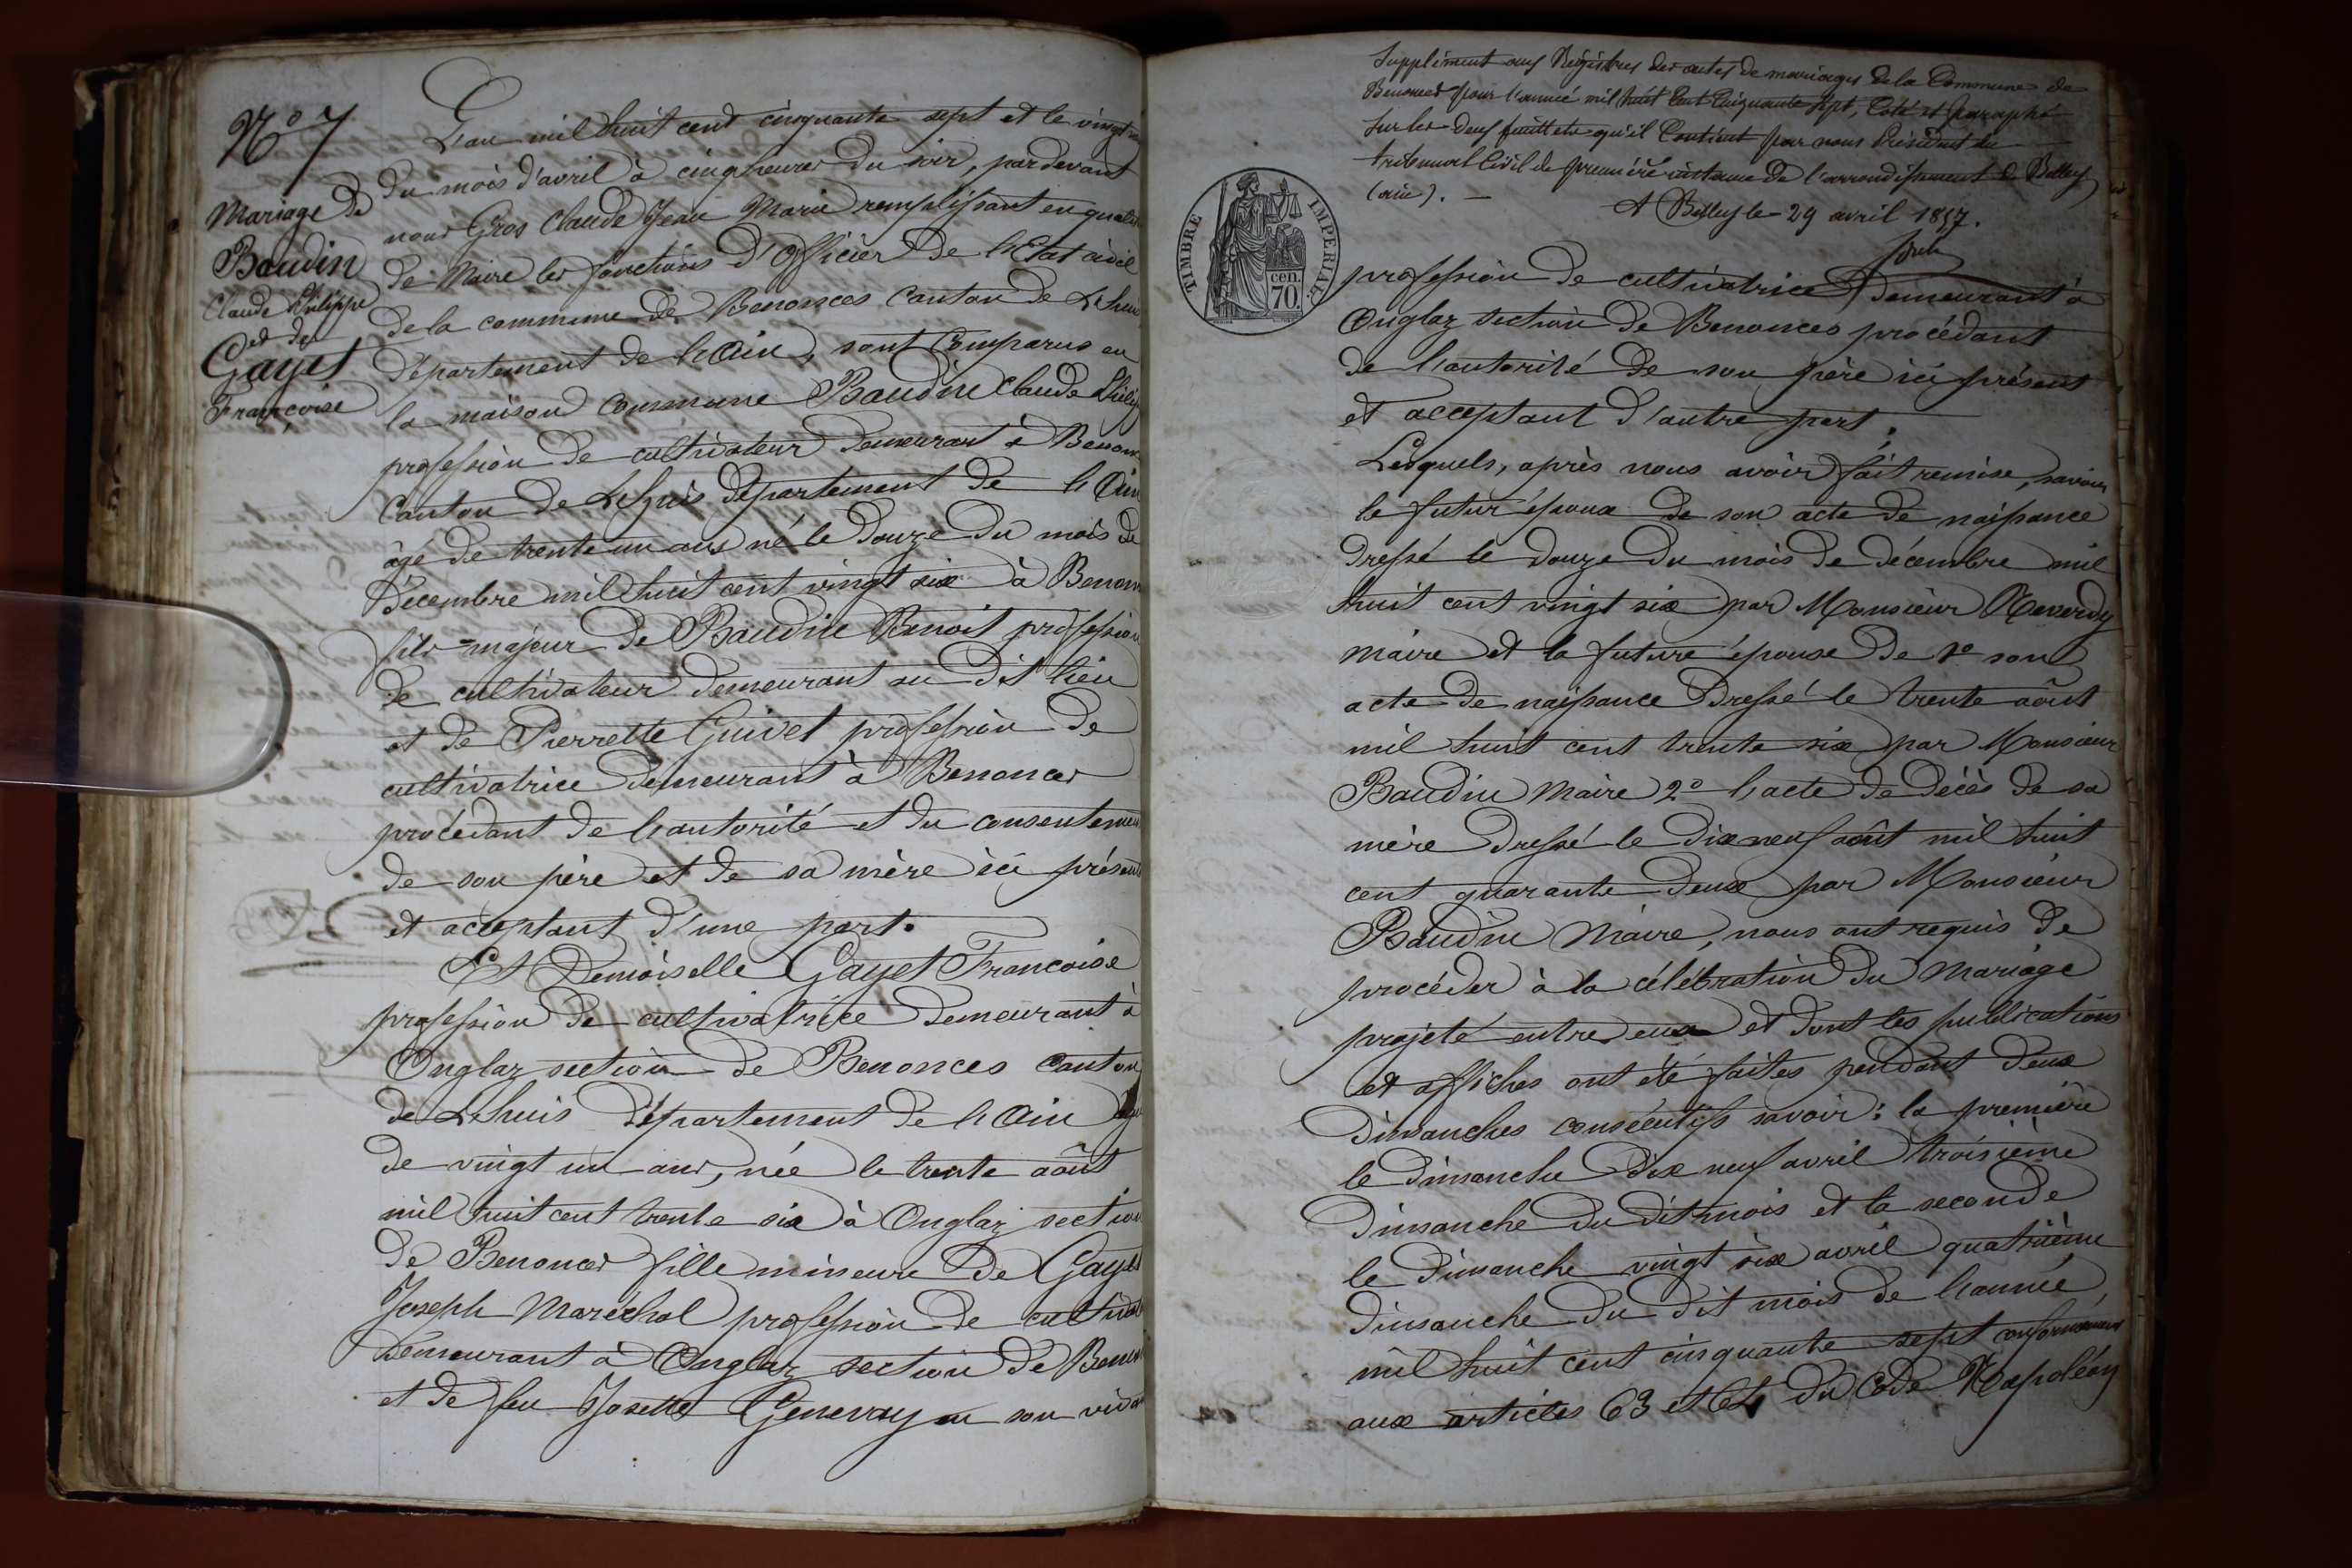 N° 7
Mariage de
Baudin
Claude Philippe
et de
Gayet
Françoise
L'an mil huit cent cinquante sept et le vingt
du mois d'avril à cinq heures du soir, pardevant
nous Gros Claude Jean Marie remplissant en qualité
de Maire les fonctions d'Officier de l'Etat civil
de la commune de Benonces canton de Lhuis
département de l'Ain, sont comparus en
la maison commune Baudin Claude Philip
profession de cultivateur demeurant à Benon
canton de Lhuis département de l'Ain
âgé de trente un ans né le douze du mois de
Décembre mil huit cent vingt six à Benon
fils majeur de Baudin Benoit profession
de cultivateur demeurant au dit lieu
et de Pierrette Guivet profession de
cultivatrice demeurant à Benonces
procédant de l'autorité et du consentemen
de son père et de sa mère ici présents
et acceptant d'une part.
Et Demoiselle Gayet Francoise
profession de cultivatrice demeurant à
Onglaz section de Benonces canton
de Lhuis département de l'Ain âgé
de vingt un ans, née le trente août
mil huit cent trente six à Onglaz section
de Benonces fille mineure de Gayet
Joseph Maréchal profession de cultivat
demeurant à Onglaz section de Benon
et de feu Josette Genevay en son viva
Supplément aux Régistres des actes de mariages de la Commune de
Benonces pour l'année mil huit cent cinquante sept, Coté et paraphé
sur les deux feuillets qu'il contient par nous Président du
tribunal civil de première instance de l'arrondissement de Belley
(ain). —
A Belley le 29 avril 1857.
TIMBRE IMPERIAL
cen.
70.
profession de cultivatrice demeurant à
Onglaz section de Benonces procédant
de l'autorité de son père ici présent
et acceptant d'autre part.
Lesquels, après nous avoir fait remise, savoir
le futur époux de son acte de naissance
dressé le douze du mois de décembre mil
huit cent vingt six par Monsieur Reverdy
maire et la future épouse de 1° son
acte de naissance dressé le trente août
mil huit cent trente six par Monsieur
Baudin Maire 2° l'acte de décès de sa
mère dressé le dix neuf août mil huit
cent quarante deux par Monsieur
Baudin Maire, nous ont requis de
procéder à la célébration du mariage
projeté entre eux et dont les publications
et affiches ont été faites pendant deux
Dimanches consécutifs savoir: la première
le Dimanche dix neuf avril troisième
Dimanche du dit mois et la seconde
le Dimanche vingt six avril quatrième
Dimanche du dit mois de l'année
mil huit cent cinquante sept conformément
aux articles 63 et 64 du Code Napoléon